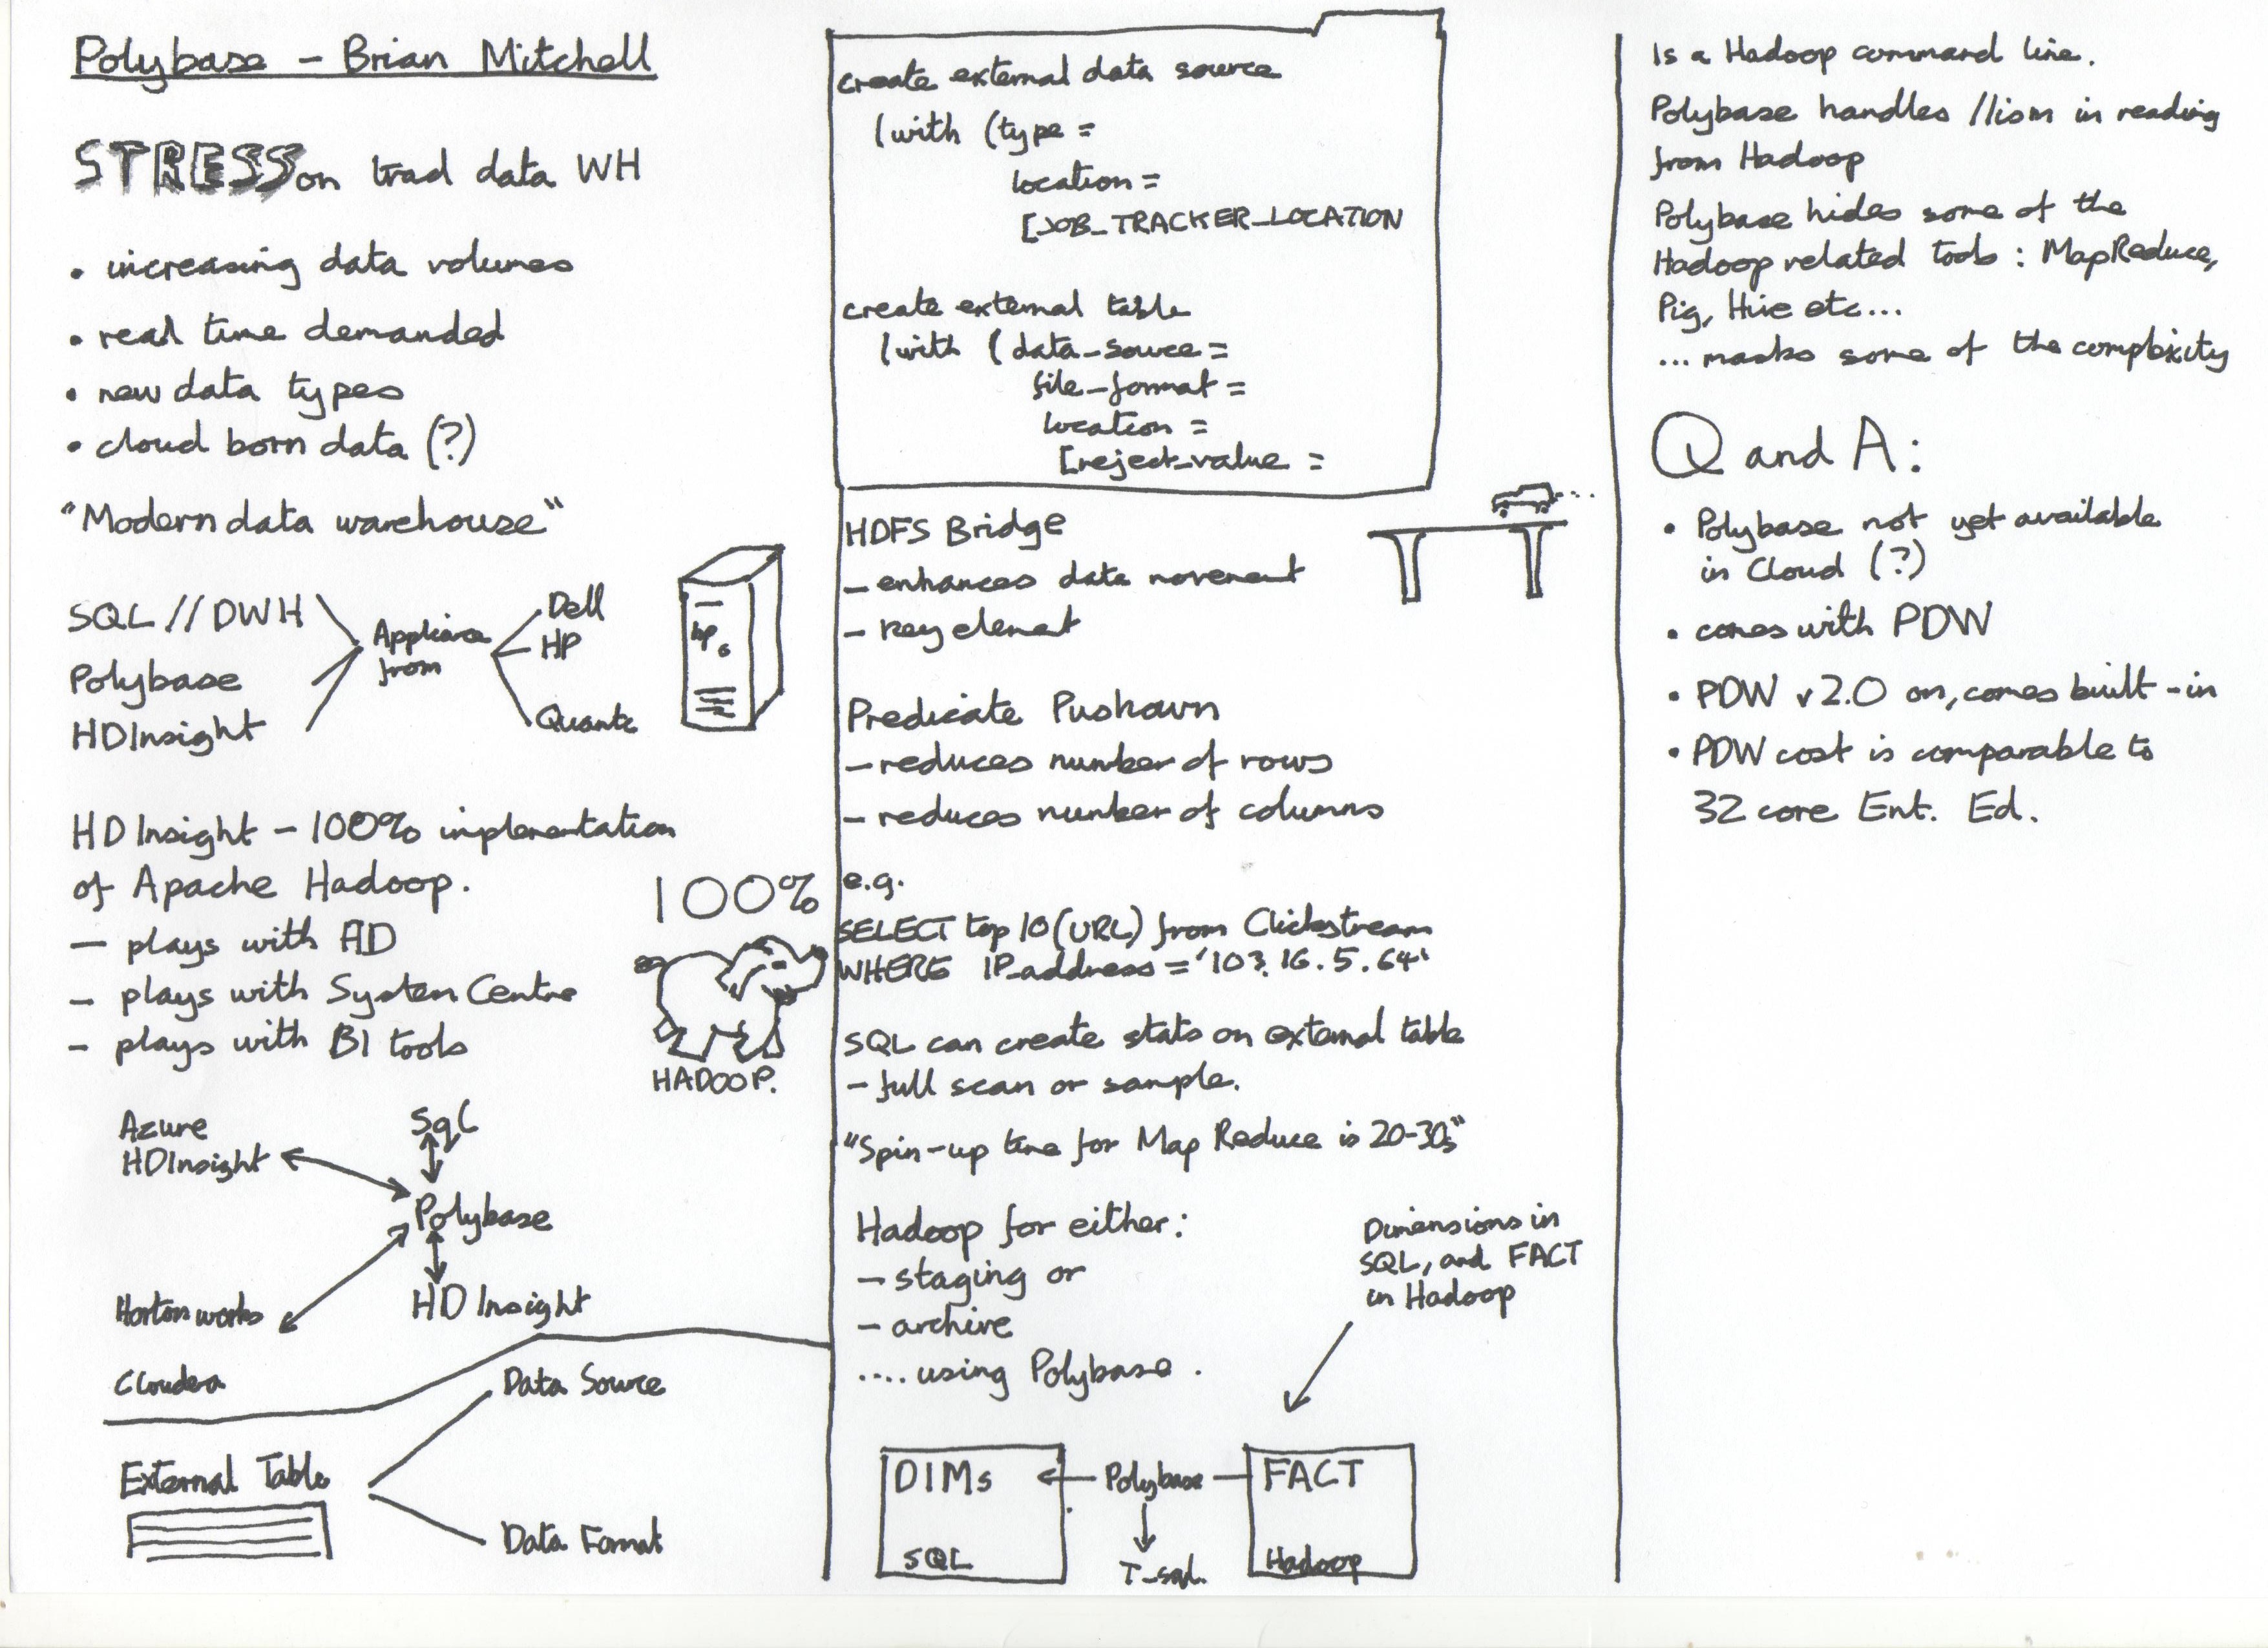 Polybase - Brian Mitchell
STRESS on trad data WH
• increasing data volumes
• real time demanded
• new data types
• cloud born data (?)
"Modern data warehouse"
SQL // DWH
Polybase
HDInsight
Appliance
from
Dell
HP
Quanta
hp
HD Insight - 100% implementation
of Apache Hadoop.
- plays with AD
- plays with System Centre
- plays with BI tools
100%
HADOOP.
Azure
HDInsight
SQL
Polybase
HD Insight
Horton works
Cloudera
External Table
Data Source
Data Format
create external data source
(with (type =
location =
[JOB_TRACKER_LOCATION
create external table
(with (data_source =
file_format =
location =
[reject_value =
HDFS Bridge
- enhances data movement
- key element
Predicate Pushdown
- reduces number of rows
- reduces number of columns
e.g.
SELECT top 10 (URL) from Clickstream
WHERE IP_address = '103.16.5.64'
SQL can create stats on external table
- full scan or sample.
"Spin-up time for Map Reduce is 20-30s"
Hadoop for either:
- staging or
- archive
.... using Polybase.
Dimensions in
SQL, and FACT
in Hadoop
DIMs
SQL
Polybase
T-sql.
FACT
Hadoop
Is a Hadoop command line.
Polybase handles //ism in reading
from Hadoop
Polybase hides some of the
Hadoop related tools : MapReduce,
Pig, Hive etc...
... masks some of the complexity
Q and A:
• Polybase not yet available
in Cloud (?)
• comes with PDW
• PDW v2.0 on, comes built-in
• PDW cost is comparable to
32 core Ent. Ed.